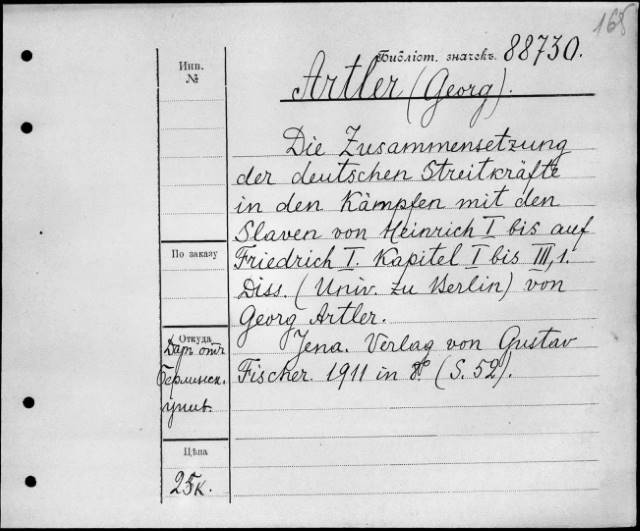 168
Библіот. значекъ. 88730.
Инв.
№
Artler (Georg).
Die Zusammensetzung
der deutschen Streitkräfte
in den Kämpfen mit den
Slaven von Heinrich I bis auf
Friedrich I. Kapitel I bis III,1.
Diss. (Univ. zu Berlin) von
Georg Artler.
Jena. Verlag von Gustav
Fischer. 1911 in 8º. (S. 52).
По заказу
Откуда
Даръ отъ
Берлинск.
унив.
Цѣна
25к.